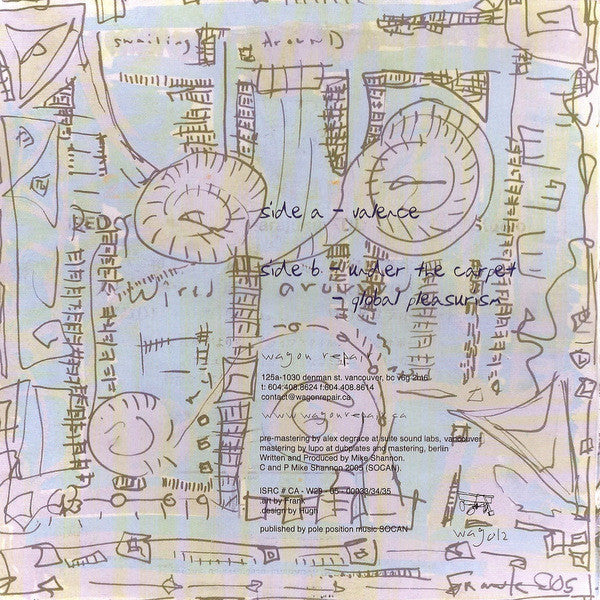 swirling around
side a - valence
side b - under the carpet
- global pleasurism
wired
wagon repair
125a-1030 denman st. vancouver, bc v6g 2m6
t: 604.408.8624 f:604.408.8614
contact@wagonrepair.ca
www.wagonrepair.ca
pre-mastering by alex degrace at suite sound labs, vancouver
mastering by lupo at dubplates and mastering, berlin
Written and Produced by Mike Shannon.
C and P Mike Shannon 2005 (SOCAN).
ISRC # CA - W29 - 05 - 00033/34/35
art by Frank
design by Hugh
published by pole position music SOCAN
wag012